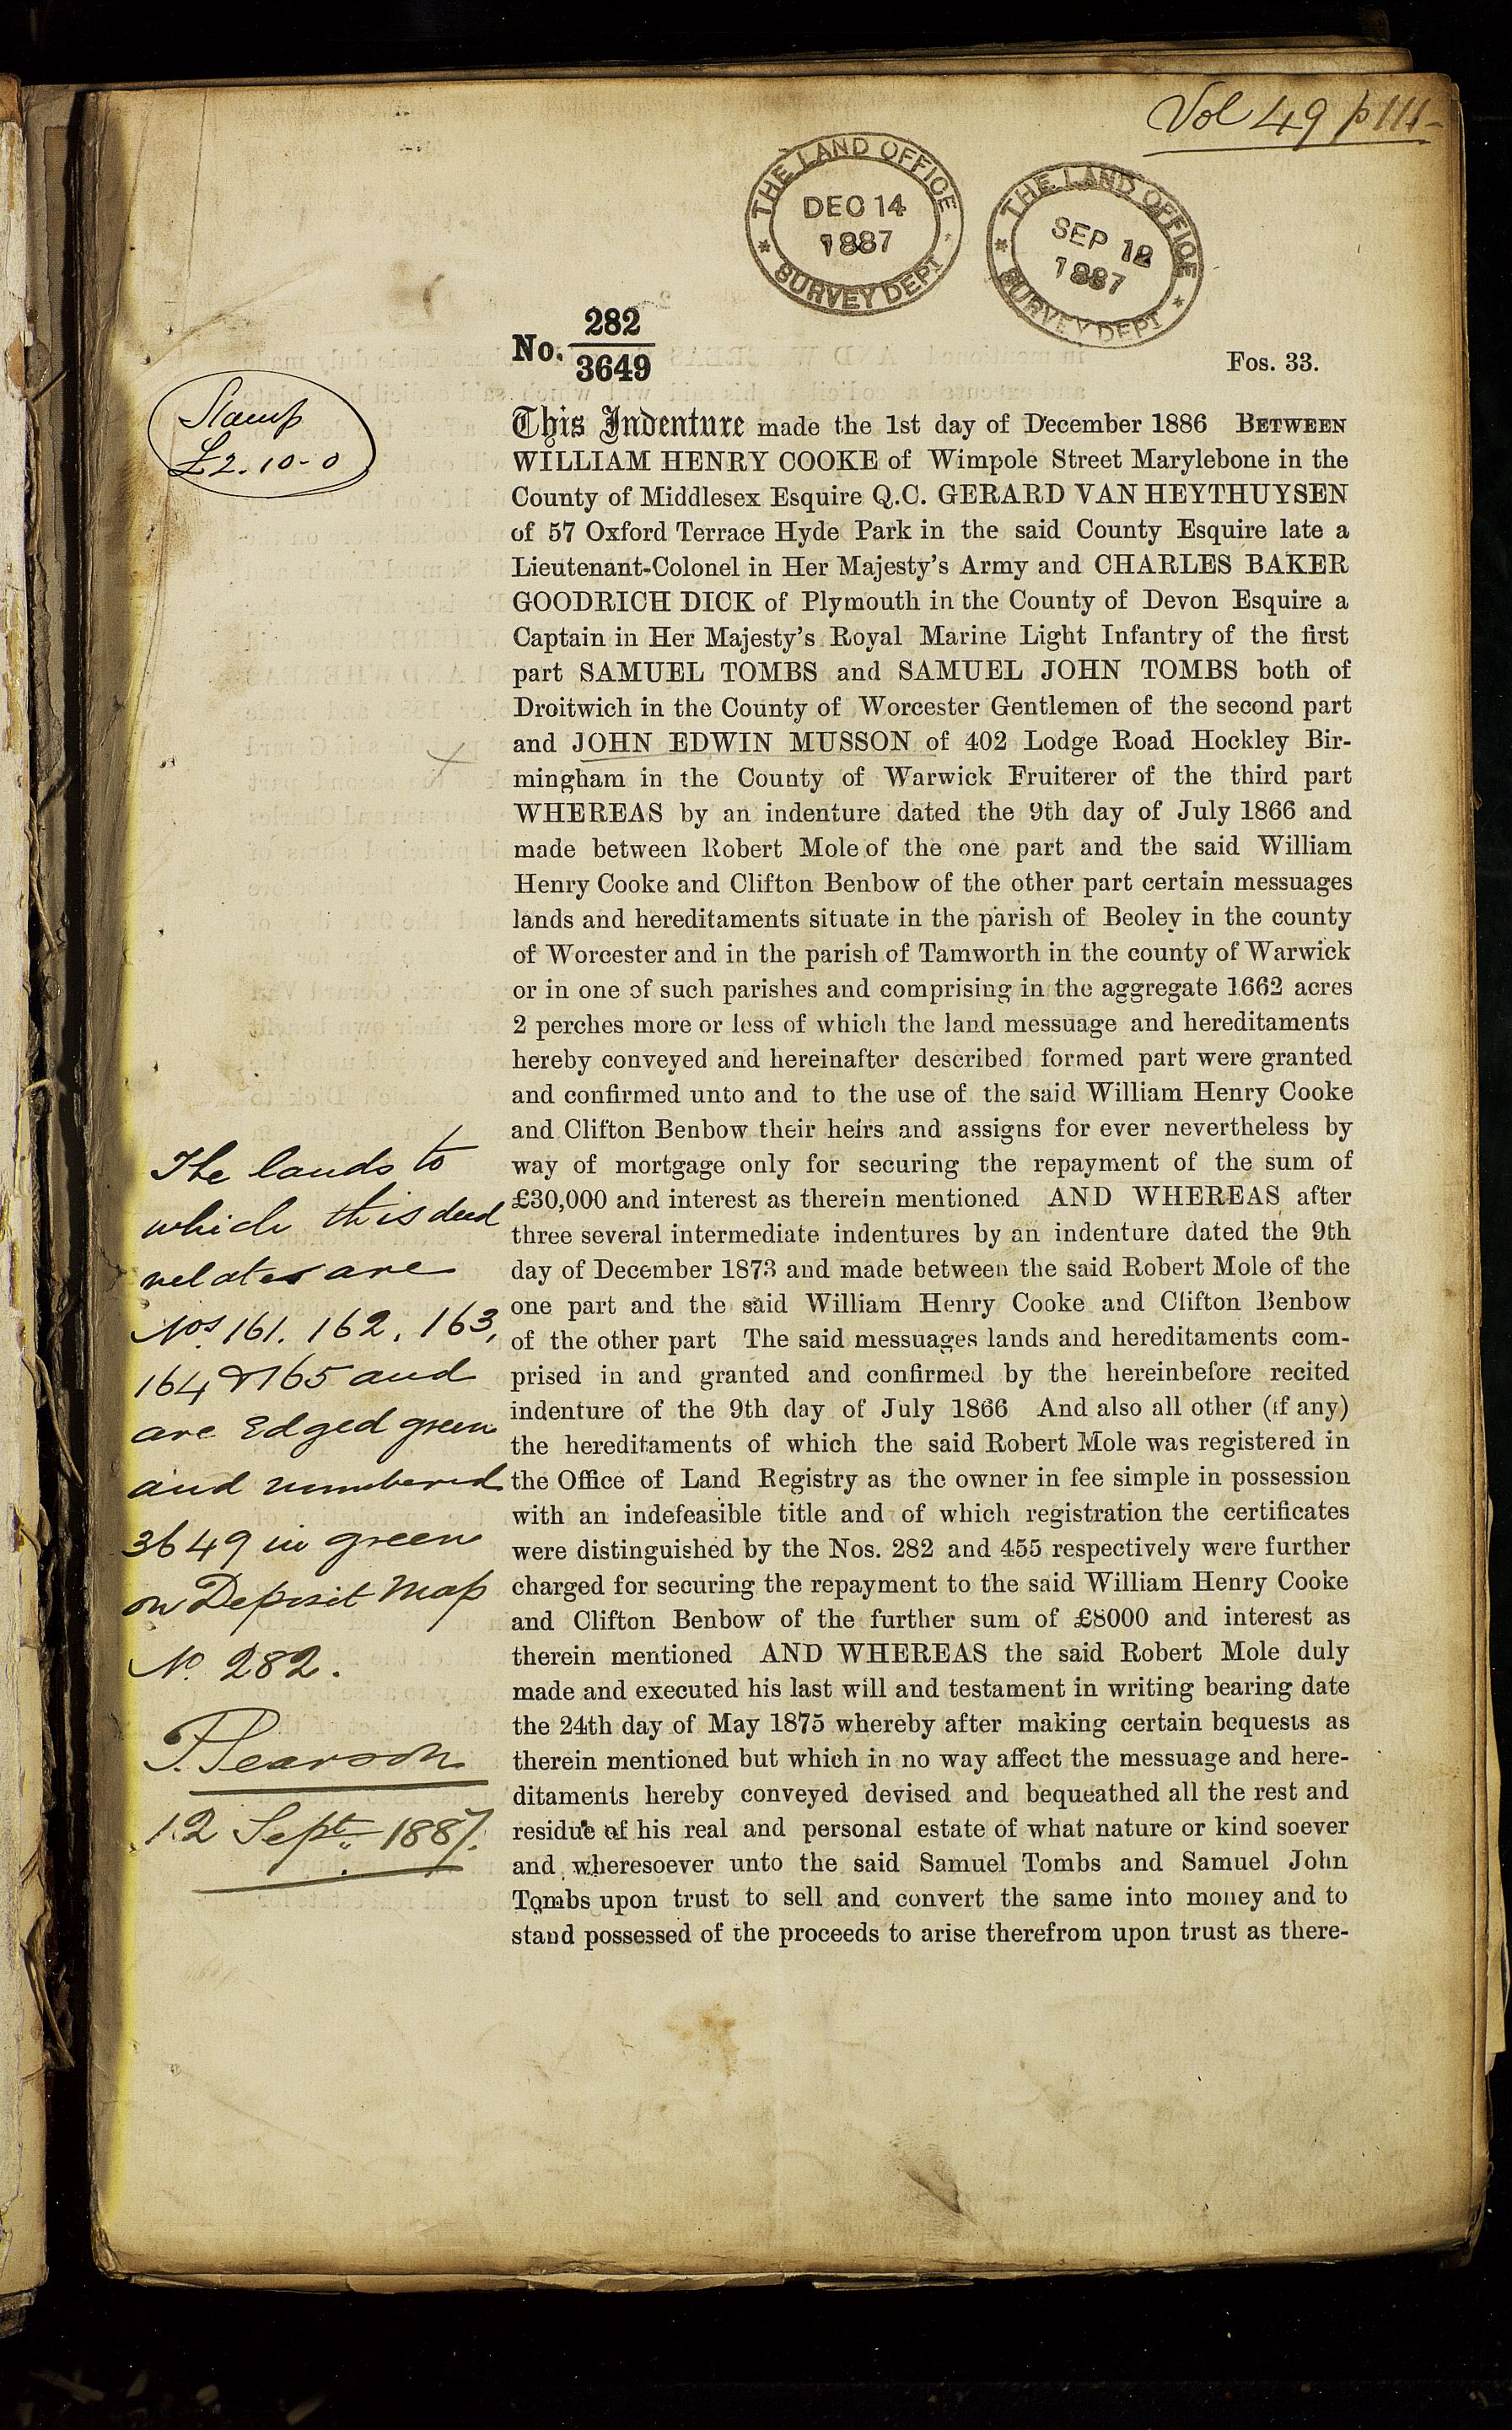 Vol 49 p 111-
THE LAND OFFICE
DEC 14
1887
SURVEY DEPT
THE LAND OFFICE
SEP 12
1887
SURVEY DEPT
No. 282
3649
Fos. 33.
Stamp
£2.10-0
This Indenture made the 1st day of December 1886 BETWEEN
WILLIAM HENRY COOKE of Wimpole Street Marylebone in the
County of Middlesex Esquire Q.C. GERARD VAN HEYTHUYSEN
of 57 Oxford Terrace Hyde Park in the said County Esquire late a
Lieutenant-Colonel in Her Majesty's Army and CHARLES BAKER
GOODRICH DICK of Plymouth in the County of Devon Esquire a
Captain in Her Majesty's Royal Marine Light Infantry of the first
part SAMUEL TOMBS and SAMUEL JOHN TOMBS both of
Droitwich in the County of Worcester Gentlemen of the second part
and JOHN EDWIN MUSSON of 402 Lodge Road Hockley Bir-
mingham in the County of Warwick Fruiterer of the third part
WHEREAS by an indenture dated the 9th day of July 1866 and
made between Robert Mole of the one part and the said William
Henry Cooke and Clifton Benbow of the other part certain messuages
lands and hereditaments situate in the parish of Beoley in the county
of Worcester and in the parish of Tamworth in the county of Warwick
or in one of such parishes and comprising in the aggregate 1662 acres
2 perches more or less of which the land messuage and hereditaments
hereby conveyed and hereinafter described formed part were granted
and confirmed unto and to the use of the said William Henry Cooke
and Clifton Benbow their heirs and assigns for ever nevertheless by
way of mortgage only for securing the repayment of the sum of
£30,000 and interest as therein mentioned AND WHEREAS after
three several intermediate indentures by an indenture dated the 9th
day of December 1873 and made between the said Robert Mole of the
one part and the said William Henry Cooke and Clifton Benbow
of the other part The said messuages lands and hereditaments com-
prised in and granted and confirmed by the hereinbefore recited
indenture of the 9th day of July 1866 And also all other (if any)
the hereditaments of which the said Robert Mole was registered in
the Office of Land Registry as the owner in fee simple in possession
with an indefeasible title and of which registration the certificates
were distinguished by the Nos. 282 and 455 respectively were further
charged for securing the repayment to the said William Henry Cooke
and Clifton Benbow of the further sum of £8000 and interest as
therein mentioned AND WHEREAS the said Robert Mole duly
made and executed his last will and testament in writing bearing date
the 24th day of May 1875 whereby after making certain bequests as
therein mentioned but which in no way affect the messuage and here-
ditaments hereby conveyed devised and bequeathed all the rest and
residue of his real and personal estate of what nature or kind soever
and wheresoever unto the said Samuel Tombs and Samuel John
Tombs upon trust to sell and convert the same into money and to
stand possessed of the proceeds to arise therefrom upon trust as there-
The lands to
which this deed
relates are
Nos 161. 162. 163,
164 & 165 and
are Edged green
and numbered
3649 in green
on Deposit Map
No. 282.
T. Pearson
12 Sept. 1887.